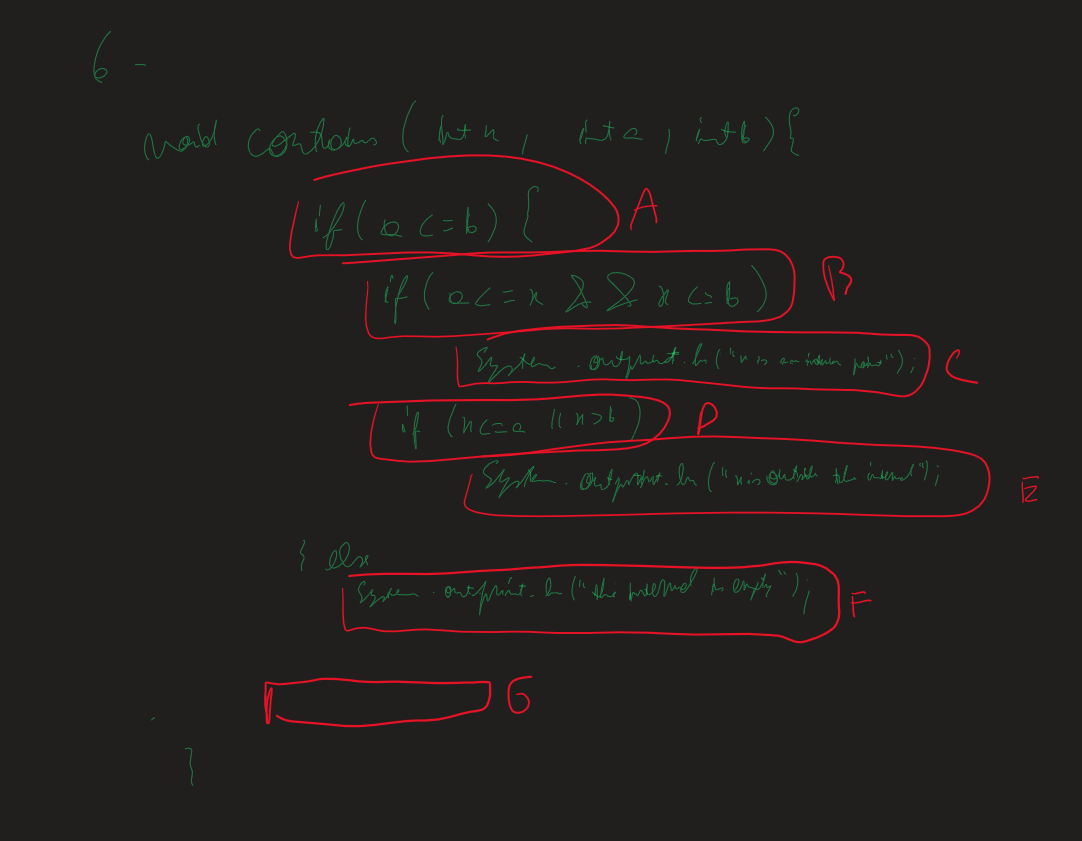 6 -
void contains (int x, int a, int b) {
if (a <= b) { A
if (a <= x && x <= b) B
System.out.print.ln("x is an interior point"); C
if (x <= a || x > b) D
System.out.print.ln("x is outside the interval"); E
} else
System.out.print.ln("the interval is empty"); F
G
}